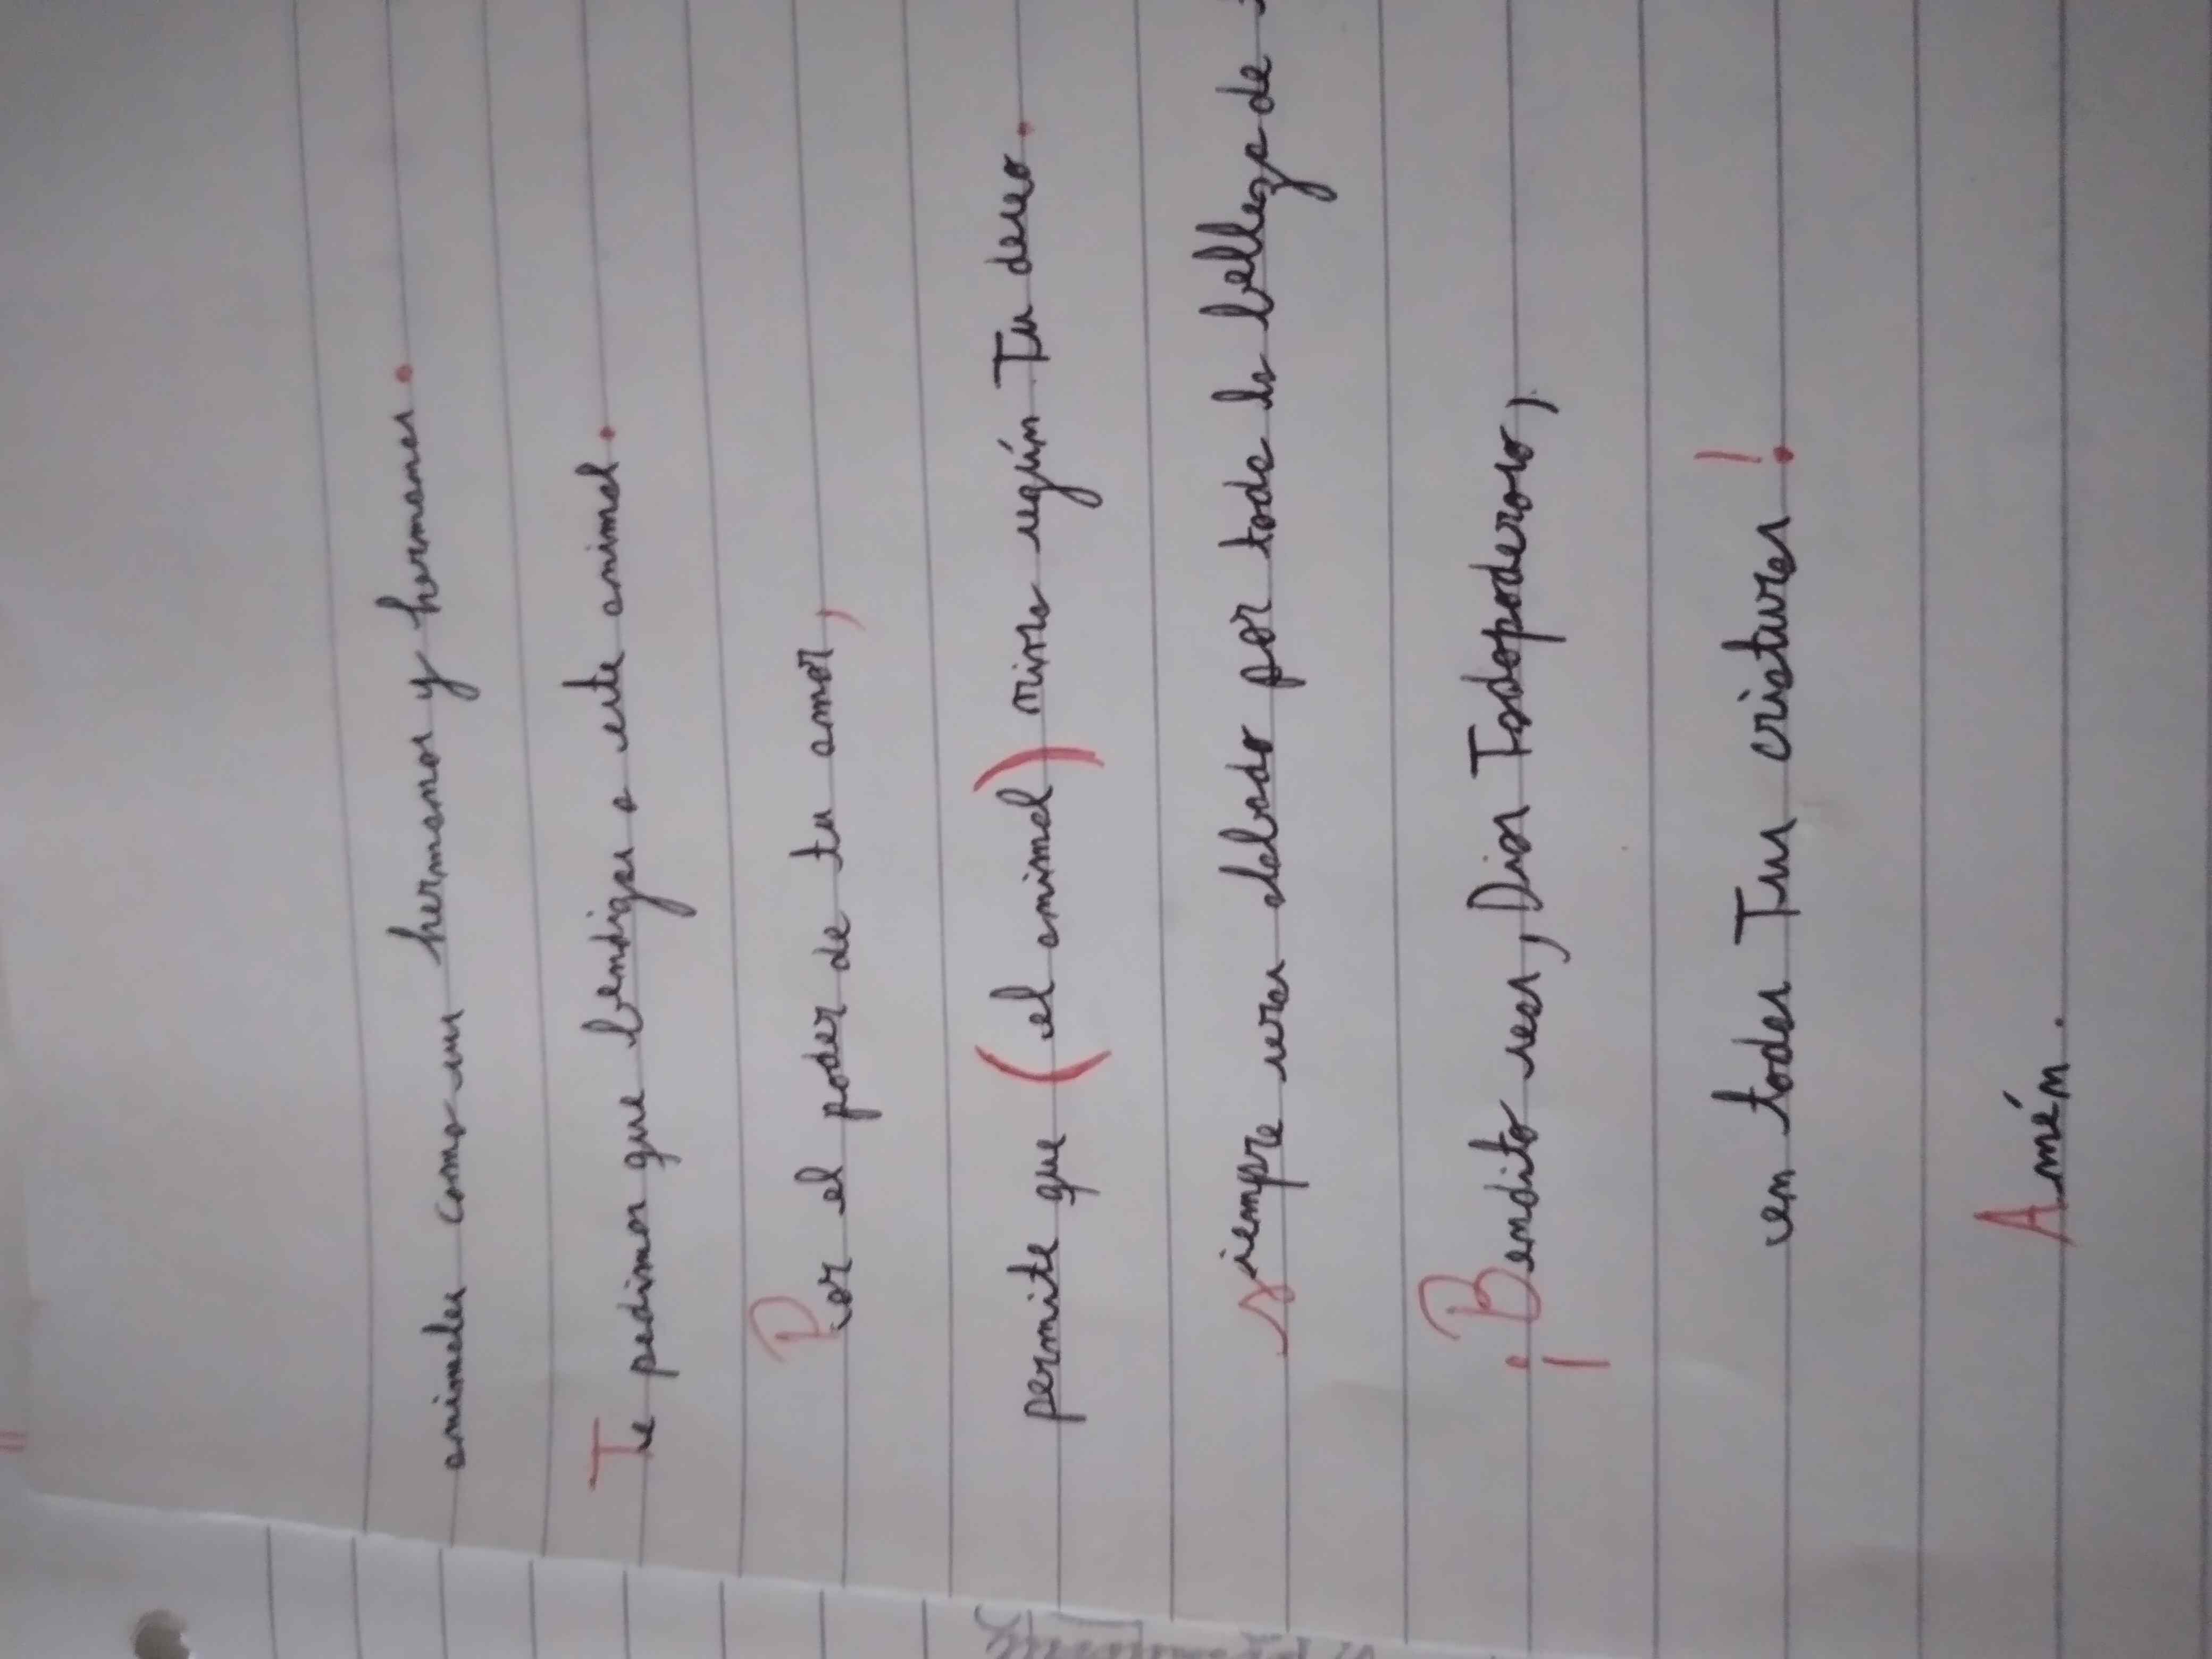 animales como sus hermanos y hermanas.
Te pedimos que bendigas a este animal.
Por el poder de tu amor,
permite que (el animal) viva según Tu deseo.
siempre seas alabado por toda la belleza de
¡Bendito seas, Dios Todopoderoso,
en todas Tus criaturas!
Amén.